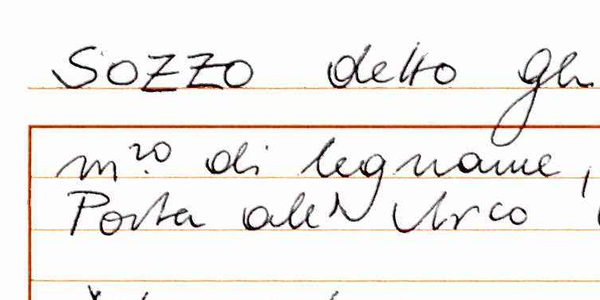 SOZZO detto Gh
m.ro di legname,
Porta all'Arco